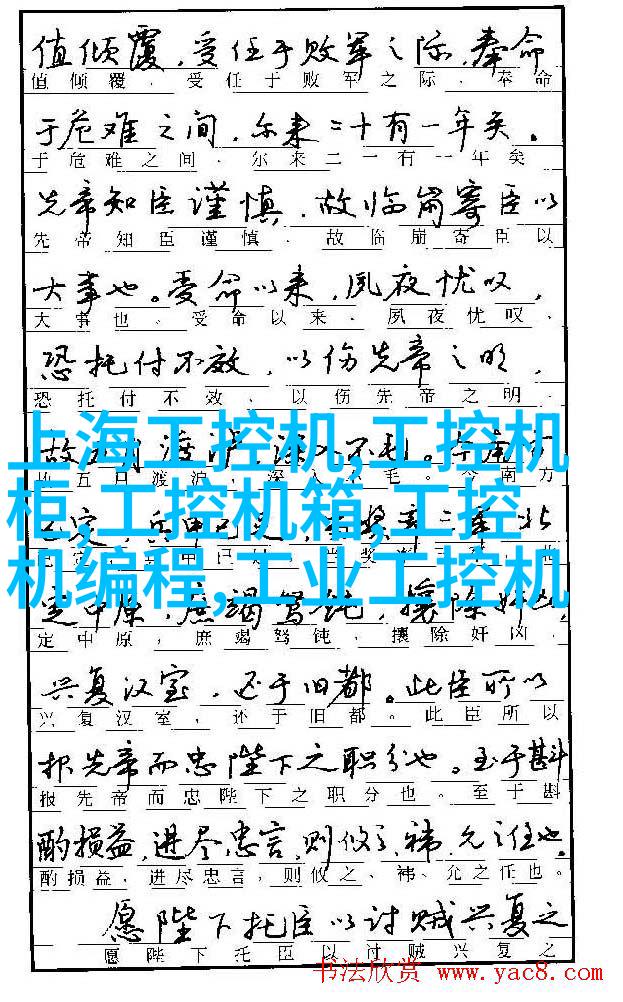 值倾覆，受任于败军之际，奉命
值倾覆．受任于败军之际．奉命
于危难之间，尔来二十有一年矣。
于危难之间．尔来二一有一年矣
先帝知臣谨慎，故临崩寄臣以
先帝知臣谨慎．故临崩寄臣以
大事也。受命以来，夙夜忧叹，
大事也．受命以来．夙夜忧叹．
恐托付不效，以伤先帝之明，
恐托付不效．以伤先帝之明．
上海工控机,工控机
柜,工控机箱,工控
机编程,工业工控机
渡泸，深入不毛。今南方
五月渡泸，深入不毛。今南方
定，兵甲已足，当奖帅三军，北
定中原，庶竭驽钝，攘除奸凶，
定中原，庶竭驽钝，攘除奸凶，
兴复汉室，还于旧都。此臣所以
兴复汉室，还于旧都。此臣所以
报先帝而忠陛下之职分也。至于斟
报先帝而忠陛下之职分也。至于斟
酌损益，进尽忠言，则攸之、祎、允之任也。
酌损益，进尽忠言，则攸之、祎、允之任也。
愿陛下托臣以讨贼兴复之
愿陛下托臣以讨贼兴复之
书法欣赏 www.yac8.com